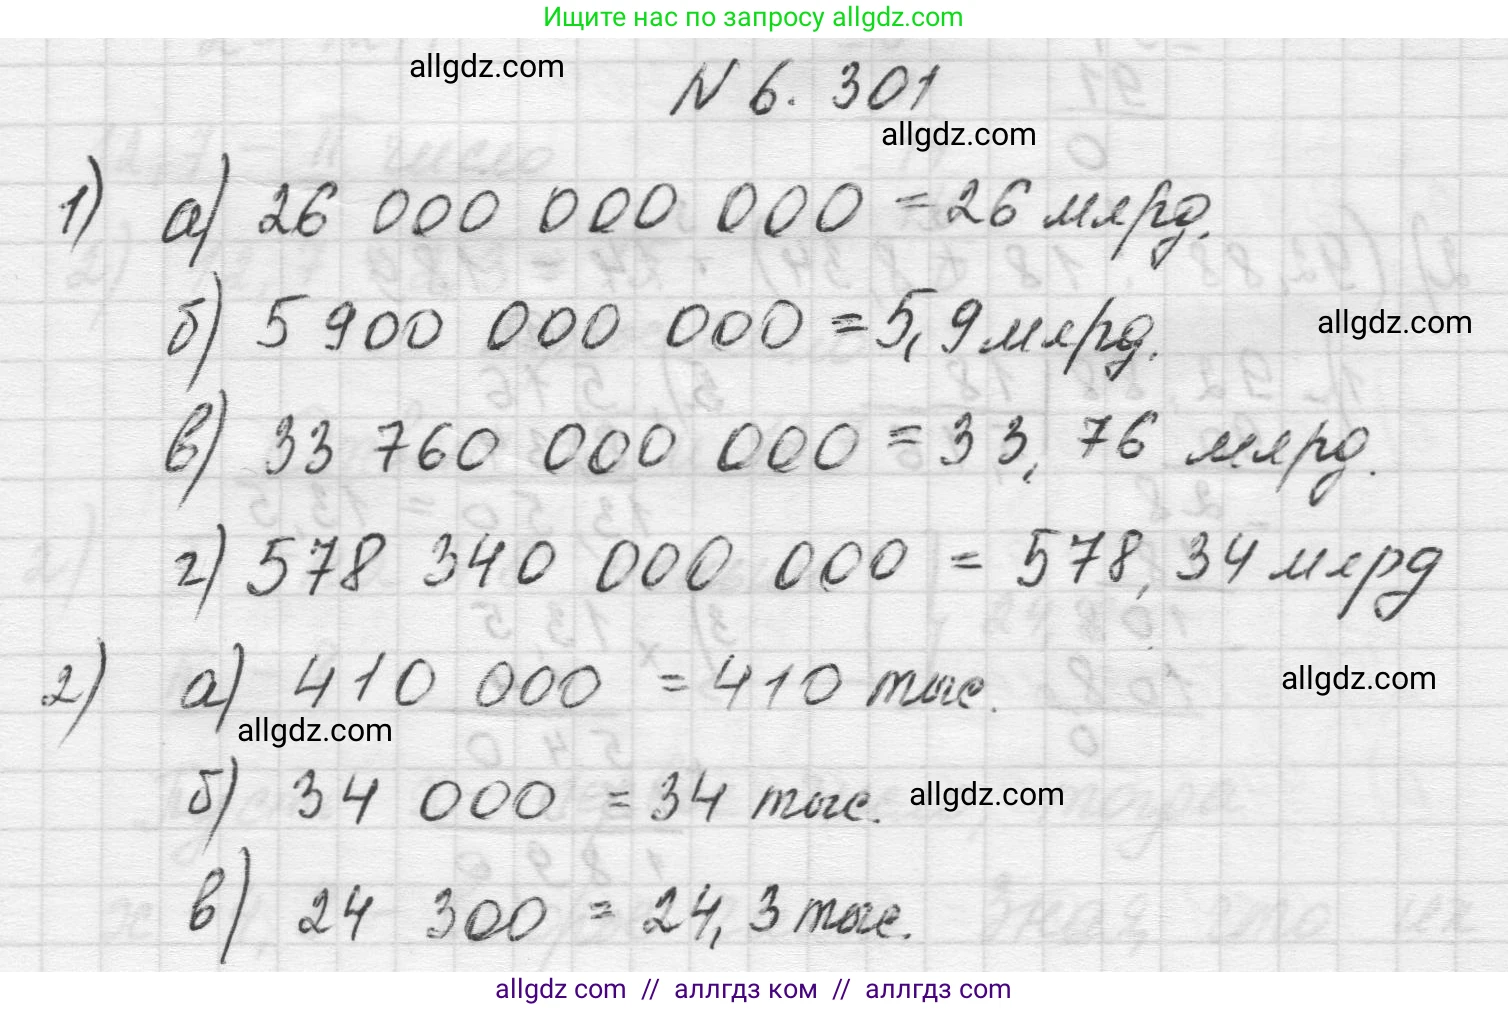 Ищите нас по запросу allgdz.com
allgdz.com
N 6. 301
allgdz.com
1) а) 26 000 000 000 = 26 млрд.
б) 5 900 000 000 = 5,9 млрд.
allgdz.com
в) 33 760 000 000 = 33,76 млрд.
г) 578 340 000 000 = 578,34 млрд
2) а) 410 000 = 410 тыс.
allgdz.com
allgdz.com
б) 34 000 = 34 тыс.
allgdz.com
в) 24 300 = 24,3 тыс.
allgdz com // аллгдз ком // аллгдз com